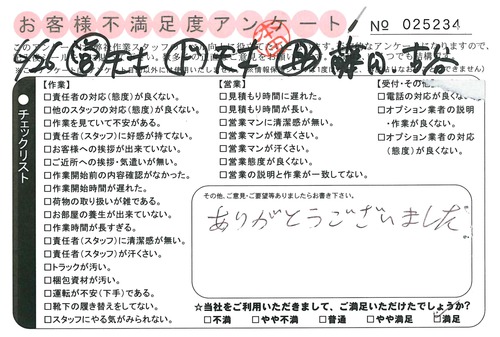 お客様不満足度アンケート
No 025234
チェックリスト
【作業】
□責任者の対応(態度)が良くない。
□他のスタッフの対応(態度)が良くない。
□作業を見ていて不安がある。
□責任者(スタッフ)に好感が持てない。
□お客様への挨拶が出来ていない。
□ご近所への挨拶・気遣いが無い。
□作業開始前の内容確認がなかった。
□作業開始時間が遅れた。
□荷物の取り扱いが雑である。
□お部屋の養生が出来ていない。
□作業時間が長すぎる。
□責任者(スタッフ)に清潔感が無い。
□責任者(スタッフ)が汗くさい。
□トラックが汚い。
□梱包資材が汚い。
□運転が不安(下手)である。
□靴下の履き替えをしてない。
□スタッフにやる気がみられない。
【営業】
□見積もり時間に遅れた。
□見積もり時間が長い。
□営業マンに清潔感が無い。
□営業マンが煙草くさい。
□営業マンが汗くさい。
□営業態度が良くない。
□営業の説明と作業が一致してない。
【受付・その他
□電話の対応が良くない。
□オプション業者の説明
・作業が良くない。
□オプション業者の対応
(態度)が良くない。
その他、ご意見・ご要望等ありましたらお書き下さい。
ありがとうございました
★当社をご利用いただきまして、ご満足いただけたでしょうか?
□不満 □やや不満 □普通 □やや満足 □満足